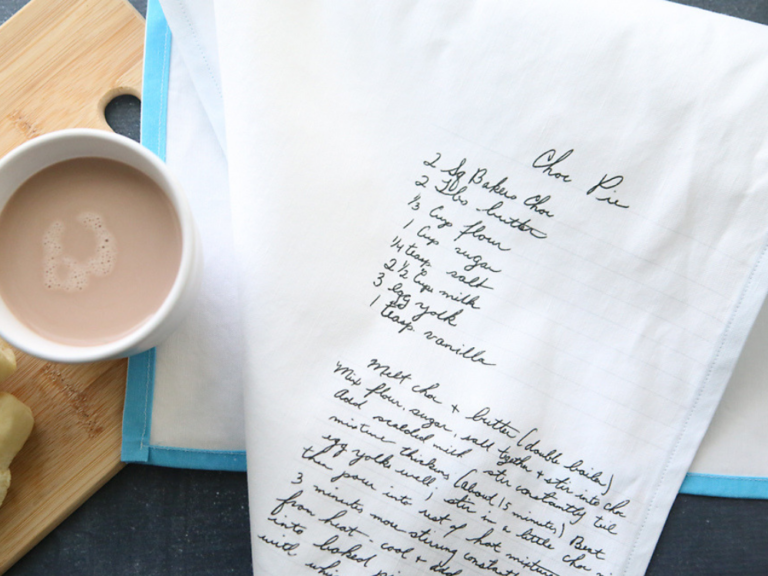 Choc Pie
2 Sq Bakers Choc
2 Tbs butter
⅓ Cup flour
1 Cup sugar
¼ teasp salt
2 ½ Cups milk
3 egg yolk
1 teasp vanilla
Melt choc + butter (double boiler)
Mix flour, sugar, salt together + stir into choc
Add scalded milk stir constantly til
mixture thickens (about 15 minutes) Beat
egg yolks well; stir in a little choc
then pour into rest of hot mixture
3 minutes more stirring constantly
from heat. cool + add
into baked
with